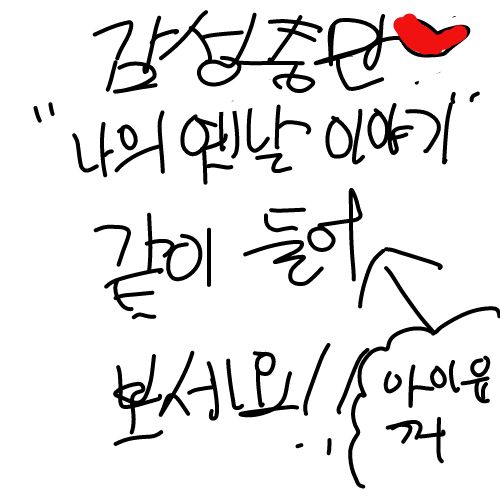 감성충만
"나의 옛날 이야기"
같이 들어
보서요!!
아이유
꺼